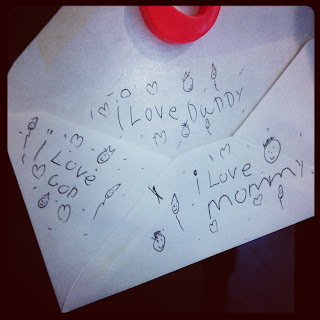 I Love Daddy
I
Love
GOD
i Love
mommy